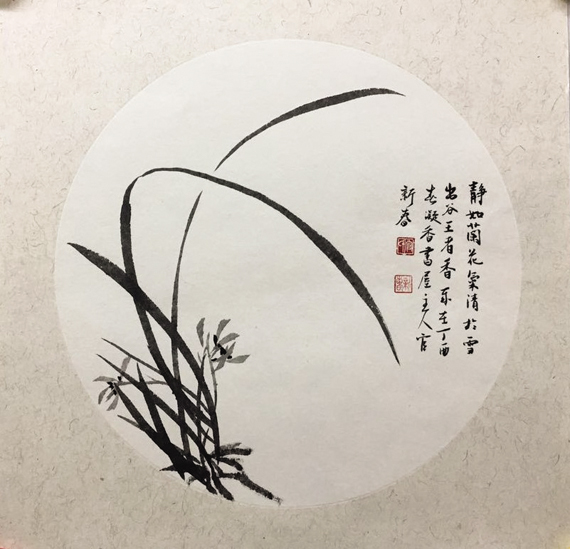 靜如蘭花氣清於雪
出谷王者香 在丁酉
春凝香書屋主人官
新春